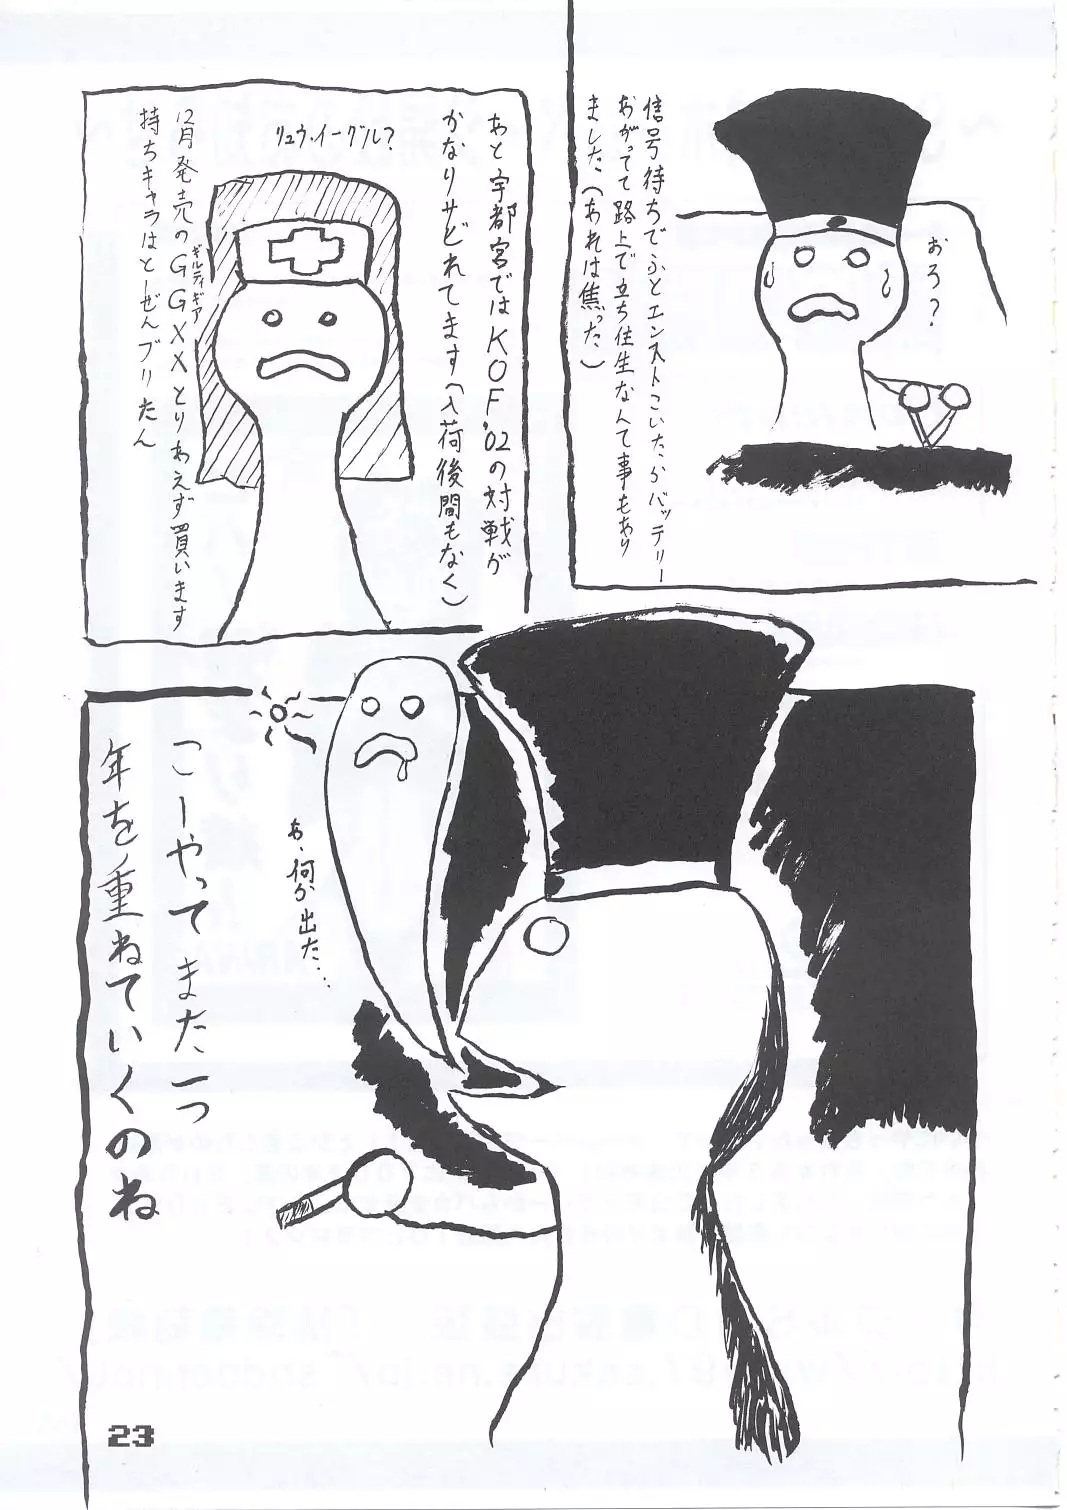 信号待ちでふとエンストこいたかバッテリー
あがって路上で立ち往生なんて事もあり
ました、(あれは焦った)
おろ?
あと宇都宮ではKOF'02の対戦が
かなりサビれてます(入荷後間もなく)
リュウ・イーグル?
12月発売のGGXXとりあえず買います
ギルティギア
持ちキャラはとーぜんブリたん
あ、何か出た…
こーやってまた一つ
年を重ねていくのね
23